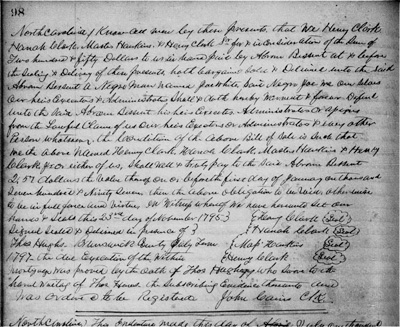 98
North Carolina / Know all men by these presents that We Henry Clark
Hannah Clark Master Hawkins & Henry Clark for & in Consideration of the Sum of
Two hundred & fifty Dollars to us in hand paid by Abram Bessent at & before
the Sealing & Delivery of these presents, hold bargained Sold & Delivered unto the said
Abram Bessent a Negro man named Jack which said Negro Jack we our selves
our heirs Executors & Administrators Shall & doth hereby Warrant & forever Defend
unto the said Abram Bessent his heirs Executors Administrators or assigns
from the Lawful Claim of us Our heirs Executors or Administrators & every other
Person Whatsoever. The Condition of the above Bill of Sale is Such that
the above Named Henry Clark Hannah Clark Master Hawkins & Henry
Clark or either of us, Shall well & truly pay to the said Abram Bessent
dollars the Value thereof on or before the first day of January one thousand
Seven hundred & Ninety Seven then the above obligation to be void otherwise
to be in full force and virtue. In Witness whereof we have hereunto set our
hands & Seals this 25th day of November 1795 } Henry Clark (Seal)
Signed Sealed & Delivered in presence of } Hannah Clark (Seal)
Thos Hughs. Brunswick County July Term } Hawkins (Seal)
1797. The due Execution of the Within } Henry Clark (Seal)
mortgage was proved by the Oath of Thos Hughs who Swore to the
hand Writing of Thos the Subscribing Evidence thereunto and
Was Ordered to be Registered John Cains Clk.
North Carolina This Indenture made this day of